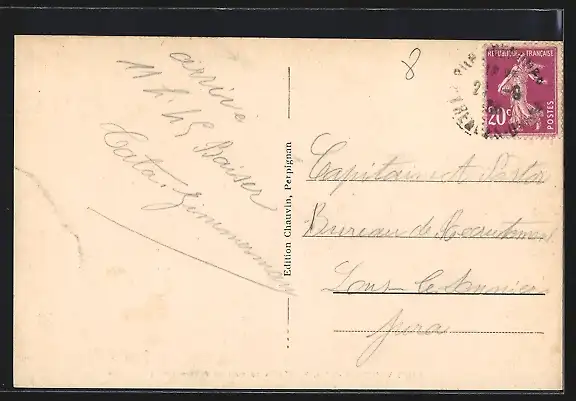 arrive
11 h 45 Baiser
Tata. Zimmermann
Edition Chauvin, Perpignan
8
REPUBLIQUE FRANÇAISE
20c
POSTES
Capitaine A Pastor
Bureau de Recrutement
Lons le Saunier
Jura